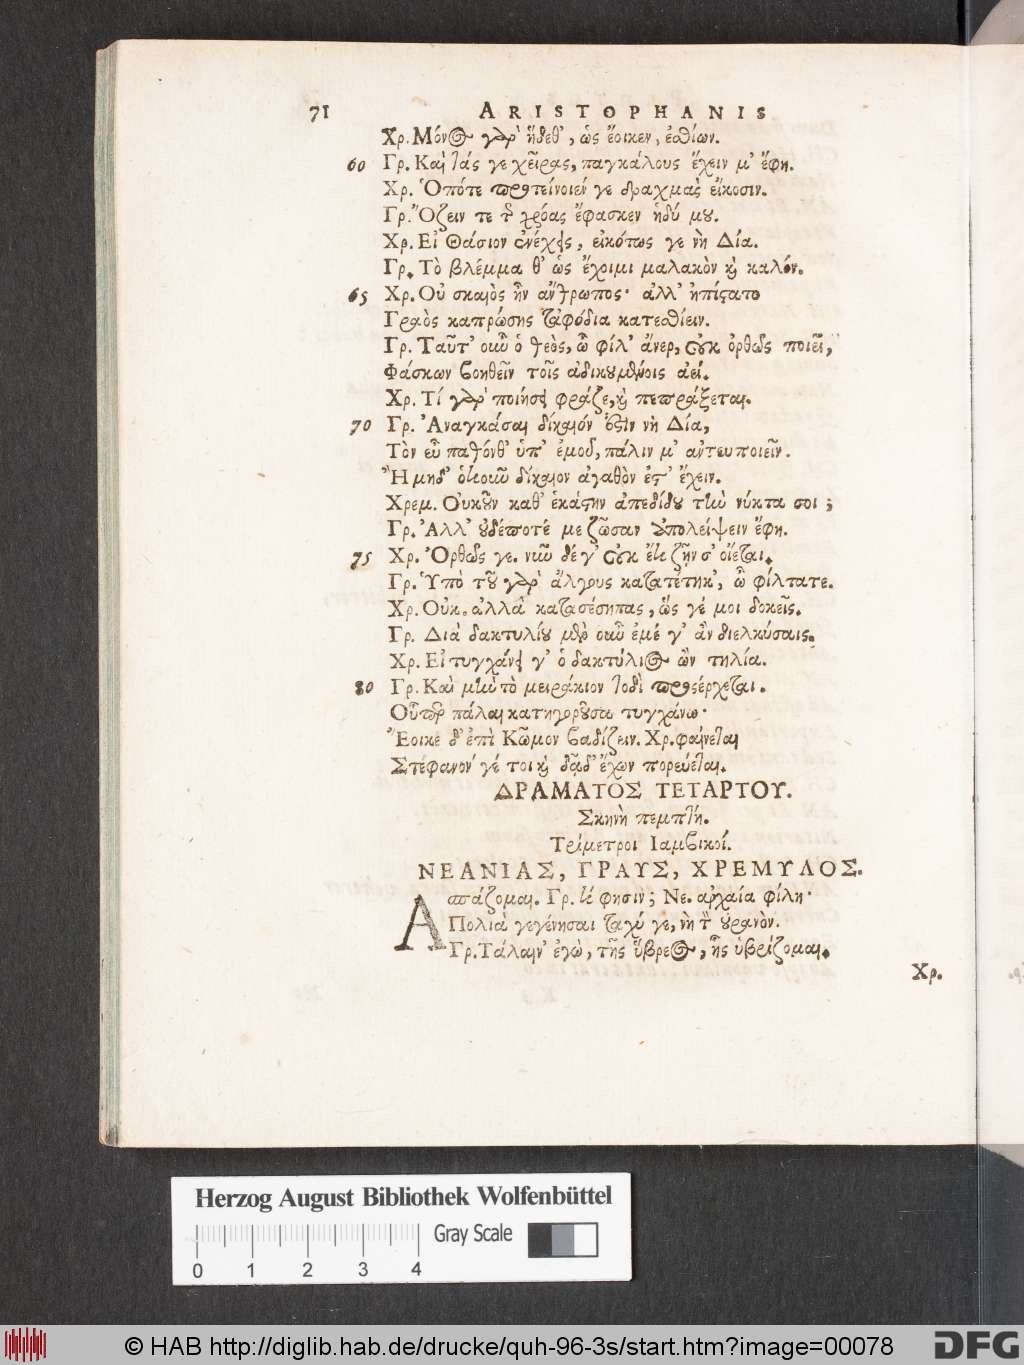 71 ARISTOPHANIS
Χρ. Μόνος γὰρ ἥδεθ', ὡς ἔοικεν, ἐσθίων.
60 Γρ. Καὶ τάς γε χεῖρας, παγκάλους ἔχειν μ' ἔφη.
Χρ. Ὁπότε προτείνοιέν γε δραχμὰς εἴκοσιν.
Γρ. Ὄζειν τε τῆς χρόας ἔφασκεν ἡδύ μου.
Χρ. Εἰ Θάσιον ἐνέχεις, εἰκότως γε νὴ Δία.
Γρ. Τὸ βλέμμα θ' ὡς ἔχοιμι μαλακὸν καὶ καλόν.
65 Χρ. Οὐ σκαιὸς ἦν ἄνθρωπος· ἀλλ' ἠπίστατο
Γραὸς καπρώσης τἀφόδια κατεσθίειν.
Γρ. Ταῦτ' οὖν ὁ θεὸς, ὦ φίλ' ἄνερ, οὐκ ὀρθῶς ποιεῖ,
Φάσκων βοηθεῖν τοῖς ἀδικουμένοις ἀεί.
Χρ. Τί γὰρ ποιήσει φράζε, καὶ πεπράξεται.
70 Γρ. Ἀναγκάσαι δίκαιόν ἐστιν νὴ Δία,
Τὸν εὖ παθόνθ' ὑπ' ἐμοῦ, πάλιν μ' ἀντευποιεῖν.
Ἢ μηδ' ὁτιοῦν δίκαιον ἀγαθὸν ἐστ' ἔχειν.
Χρεμ. Οὐκοῦν καθ' ἑκάστην ἀπεδίδου τὴν νύκτα σοι;
Γρ. Ἀλλ' οὐδέποτέ με ζῶσαν ἀπολείψειν ἔφη.
75 Χρ. Ὀρθῶς γε. νῦν δέ γ' οὐκ ἔτι ζῆν σ' οἴεται.
Γρ. Ὑπὸ τοῦ γὰρ ἄλγους κατατέτηκ', ὦ φίλτατε.
Χρ. Οὐκ. ἀλλὰ κατασέσηπας, ὥς γέ μοι δοκεῖς.
Γρ. Διὰ δακτυλίου μὲν οὖν ἐμέ γ' ἂν διελκύσαις.
Χρ. Εἰ τυγχάνει γ' ὁ δακτύλιος ὢν τηλία.
80 Γρ. Καὶ μὴν τὸ μειράκιον τοδὶ προσέρχεται.
Οὗπερ πάλαι κατηγοροῦσα τυγχάνω·
Ἔοικε δ' ἐπὶ Κῶμον βαδίζειν. Χρ. φαίνεται
Στέφανόν γέ τοι καὶ δᾷδ' ἔχων πορεύεται.
ΔΡΑΜΑΤΟΣ ΤΕΤΑΡΤΟΥ.
Σκηνὴ πεμπτή.
Τρίμετροι Ἰαμβικοί.
ΝΕΑΝΙΑΣ, ΓΡΑΥΣ, ΧΡΕΜΥΛΟΣ.
Ἀσπάζομαι. Γρ. τί φησιν; Νε. ἀρχαία φίλη·
Πολιὰ γεγένησαι ταχύ γε, νὴ τὸν οὐρανὸν.
Γρ. Τάλαιν' ἐγὼ, τῆς ὕβρεος, ἧς ὑβρίζομαι.
Χρ.
Herzog August Bibliothek Wolfenbüttel
0 1 2 3 4 Gray Scale
© HAB http://diglib.hab.de/drucke/quh-96-3s/start.htm?image=00078 DFG